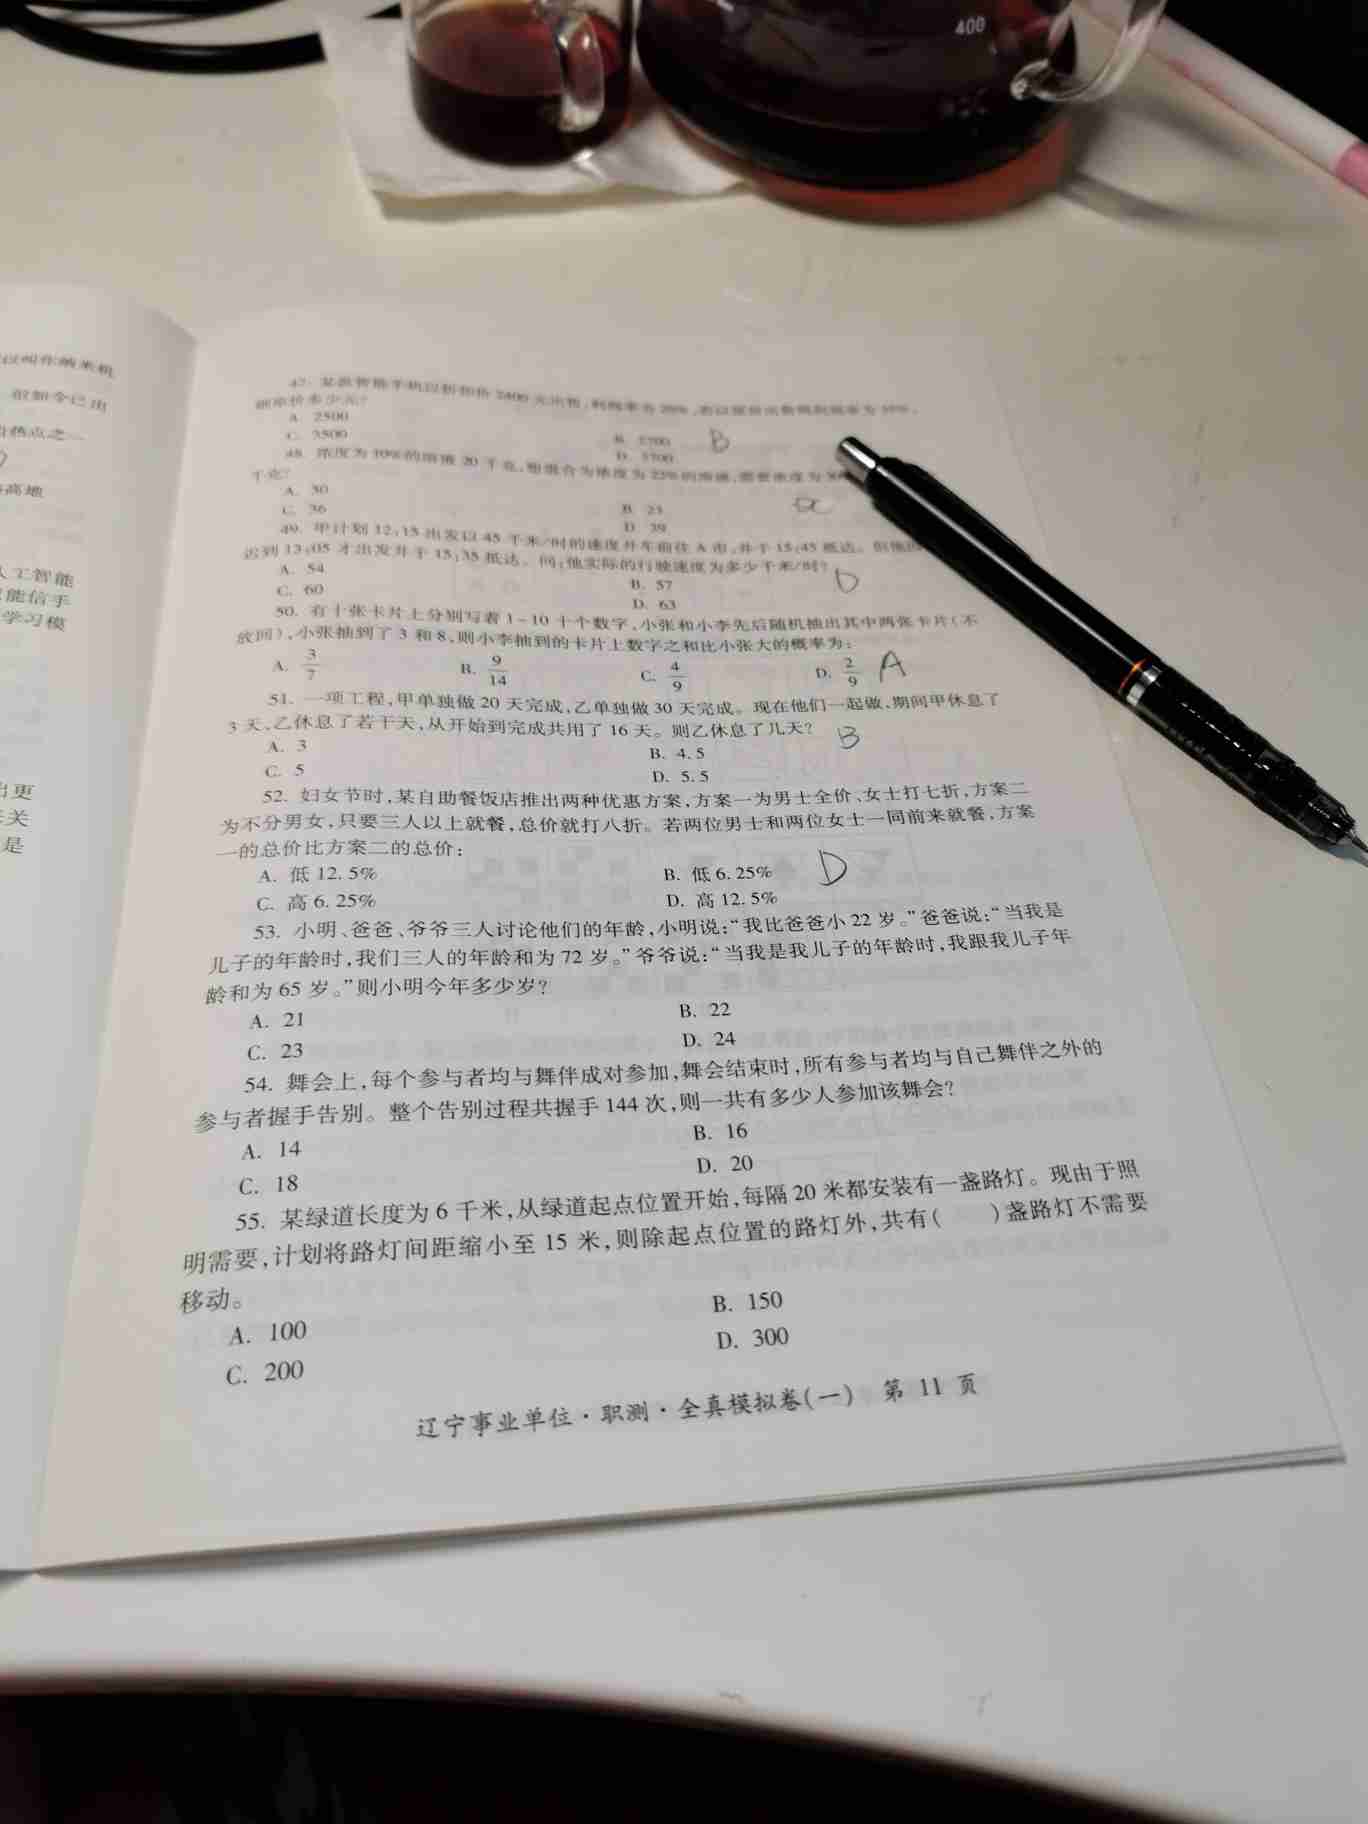 400
以叫作纳米机
很如今已出
当热点之一
高地
人工智能
能信手
学习模
出更
关
是
47. 某款智能手机以折扣价 2400 元出售,利润率为 20%,若以原价出售则利润率为
则原价多少元?
A. 2500
B. 2700 B
C. 3500
D. 3700
48. 浓度为 10%的溶液 20 千克,想混合为浓度为 22%的溶液,需要浓度为
千克?
A. 30
B. 25
C. 36
D. 39
49. 甲计划 12:15 出发以 45 千米/时的速度开车前往 A 市,并于 15:45 抵达。但他
迟到 13:05 才出发并于 15:35 抵达。问:他实际的行驶速度为多少千米/时? D
A. 54
B. 57
C. 60
D. 63
50. 有十张卡片上分别写着 1~10 十个数字,小张和小李先后随机抽出其中两张卡片(不
放回),小张抽到了 3 和 8,则小李抽到的卡片上数字之和比小张大的概率为:
A. 3/7 B. 9/14 C. 4/9 D. 2/9 A
51. 一项工程,甲单独做 20 天完成,乙单独做 30 天完成。现在他们一起做,期间甲休息了
3 天,乙休息了若干天,从开始到完成共用了 16 天。则乙休息了几天? B
A. 3
B. 4.5
C. 5
D. 5.5
52. 妇女节时,某自助餐饭店推出两种优惠方案,方案一为男士全价、女士打七折,方案二
为不分男女,只要三人以上就餐,总价就打八折。若两位男士和两位女士一同前来就餐,方案
一的总价比方案二的总价:
A. 低 12.5%
B. 低 6.25% D
C. 高 6.25%
D. 高 12.5%
53. 小明、爸爸、爷爷三人讨论他们的年龄,小明说:“我比爸爸小 22 岁。”爸爸说:“当我是
儿子的年龄时,我们三人的年龄和为 72 岁。”爷爷说:“当我是我儿子的年龄时,我跟我儿子年
龄和为 65 岁。”则小明今年多少岁?
A. 21
B. 22
C. 23
D. 24
54. 舞会上,每个参与者均与舞伴成对参加,舞会结束时,所有参与者均与自己舞伴之外的
参与者握手告别。整个告别过程共握手 144 次,则一共有多少人参加该舞会?
A. 14
B. 16
C. 18
D. 20
55. 某绿道长度为 6 千米,从绿道起点位置开始,每隔 20 米都安装有一盏路灯。现由于照
明需要,计划将路灯间距缩小至 15 米,则除起点位置的路灯外,共有( )盏路灯不需要
移动。
A. 100
B. 150
C. 200
D. 300
辽宁事业单位·职测·全真模拟卷(一) 第 11 页